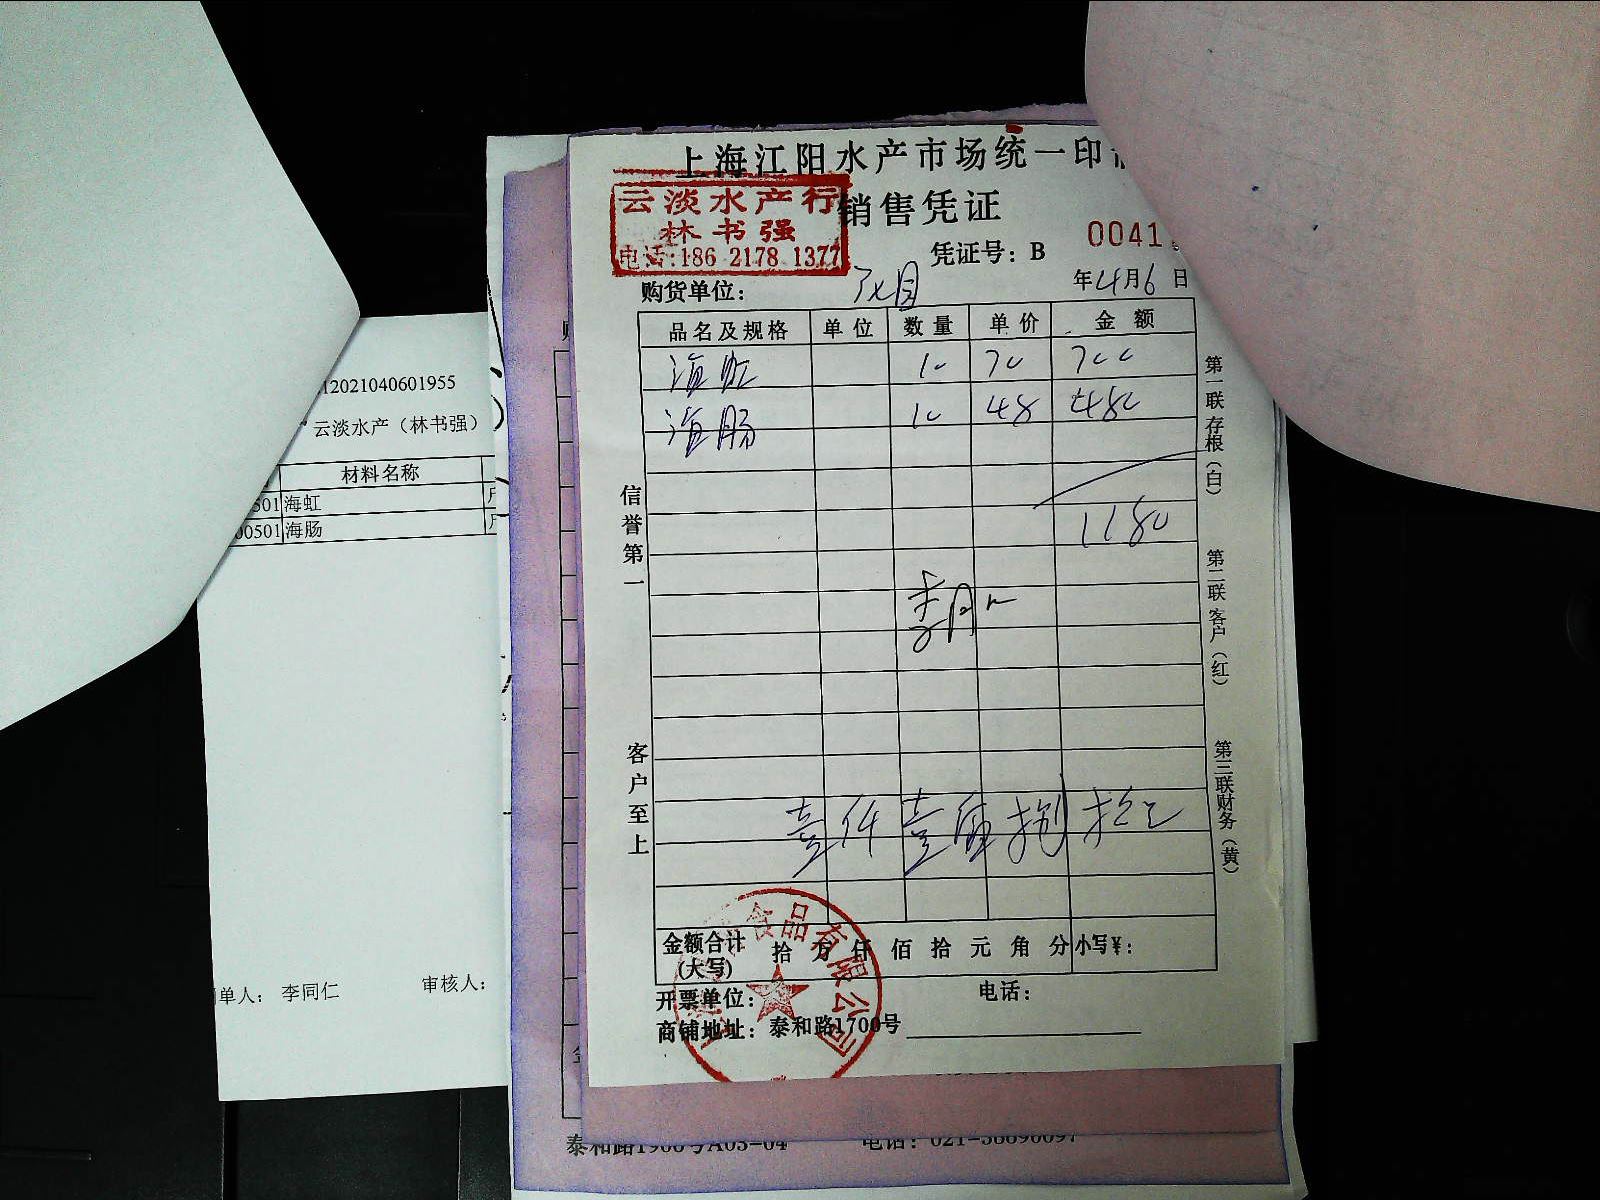 上海江阳水产市场统一印
云淡水产行
销售凭证
林书强
电话:186 2178 1377
凭证号：B 0041
购货单位：
年4月6日
品名及规格 单位 数量 单价 金额
海虹 10 70 700
海肠 10 48 480
1180
壹仟壹佰捌拾元
金额合计(大写) 拾 万 仟 佰 拾 元 角 分 小写￥：
开票单位： 电话：
商铺地址：泰和路1700号
信誉第一
客户至上
第一联存根（白）
第二联客户（红）
第三联财务（黄）
食品有限公司
2021040601955
云淡水产（林书强）
材料名称
501 海虹
00501 海肠
单人： 李同仁 审核人：